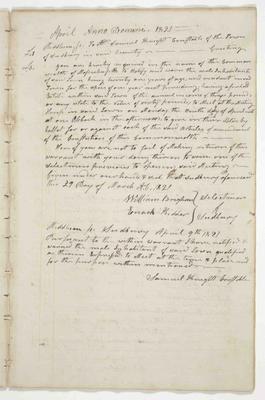 April Anno Domini 1821
Middlesex Ss. To Mr Samuel Haught Constable of the Town
of Sudbury in said County Greeting
you are hereby required in the name of the Common
wealth of Massachusetts to Notify and warn the male Inhabitants
of said Town being twenty one years of age and resident in said
Town for the space of one year next preceding, having a freehold
Estate within said Town of the annual income of three pounds
or any estate to the value of sixty pounds, to Meet at the Meeting
House in said Town on Monday the ninth day of April
at one Oclock in the afternoon to give in their Votes by
ballot for or against each of the said articles of amendment
of the Constitution of this Commonwealth
Hereof you are not to fail of Making return of this
warrant with your doings thereon to some one of the
selectmen previous to Opening said Meeting
Given under our hands & seal at Sudbury aforesaid
this 27 Day of March AD. 1821
William Brigham Selectmen
Enoch Kidder Sudbury
Middlesex Ss. Sudbury April 9th 1821
Pursuant to the within warrant I have notified &
warned the male Inhabitants of said Town qualified
as therein Expressed to Meet at the time & place and
for the purpose within mentioned
Samuel Haught Constable